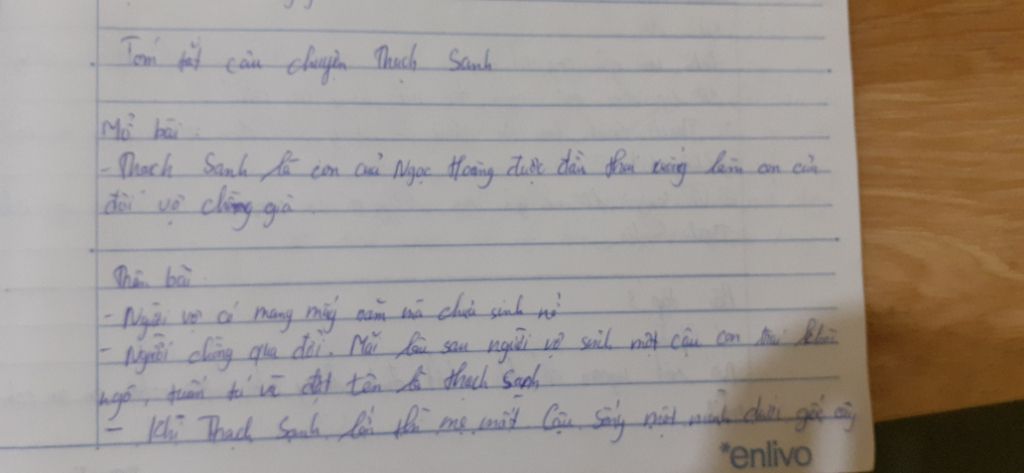 Tóm tắt câu chuyện Thạch Sanh
Mở bài
- Thạch Sanh là con của Ngọc Hoàng được đầu thai xuống làm con của
đôi vợ chồng già
Thân bài
- Người vợ có mang mấy năm mà chưa sinh nở
- Người chồng qua đời. Mãi lâu sau người vợ sinh một cậu con trai khôi
ngô, tuấn tú và đặt tên là Thạch Sanh
- Khi Thạch Sanh lớn thì mẹ mất Cậu sống một mình dưới gốc cây
*enlivo